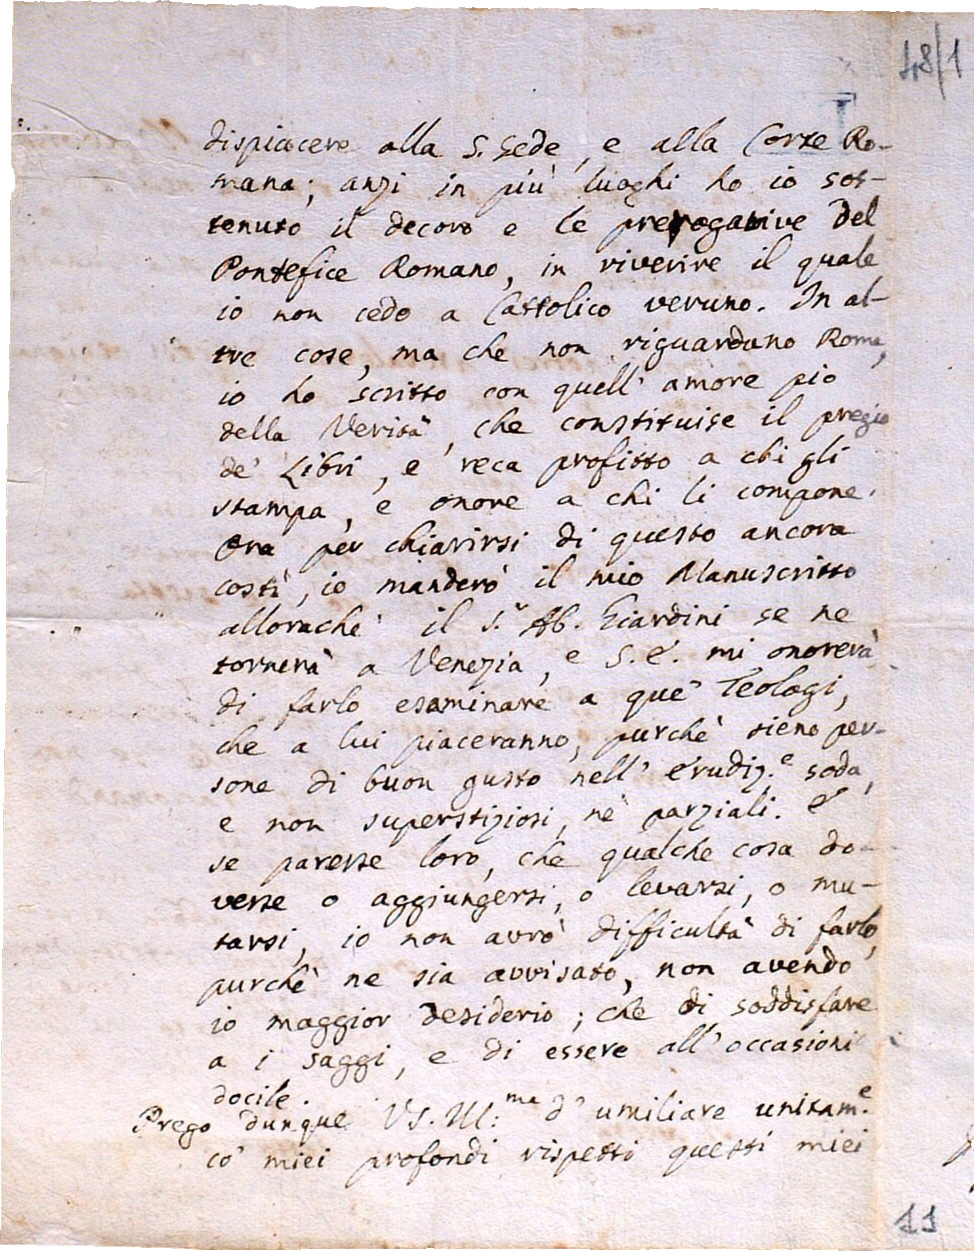 48/1
dispiacere alla S. Sede, e alla Corte Ro-
mana; anzi in più luoghi ho io sos-
tenuto il decoro e le prerogative del
Pontefice Romano, in riverire il quale
io non cedo a Cattolico veruno. In al-
tre cose, ma che non riguardano Roma,
io ho scritto con quell' amore pio
della Verità, che constituisce il pregio
de' Libri, e reca profitto a chi gli
stampa, e onore a chi li compone.
Ora per chiarirsi di questo ancora
costì, io manderò il mio Manuscritto
allorachè il S.r Ab. Giardini se ne
tornerà a Venezia, e S. E. mi onorerà
di farlo esaminare a que' Teologi,
che a lui piaceranno, purchè sieno per-
sone di buon gusto nell' erudiz.e soda,
e non superstiziosi, nè parziali. E
se paresse loro, che qualche cosa do-
vesse o aggiungersi, o levarsi, o mu-
tarsi, io non avrò difficultà di farlo,
purchè ne sia avvisato, non avendo
io maggior desiderio; che di soddisfare
a i saggi, e di essere all' occasioni
docile.
Prego dunque VS. Ill:ma d' umiliare unitam.e
co' miei profondi rispetti questi miei
11